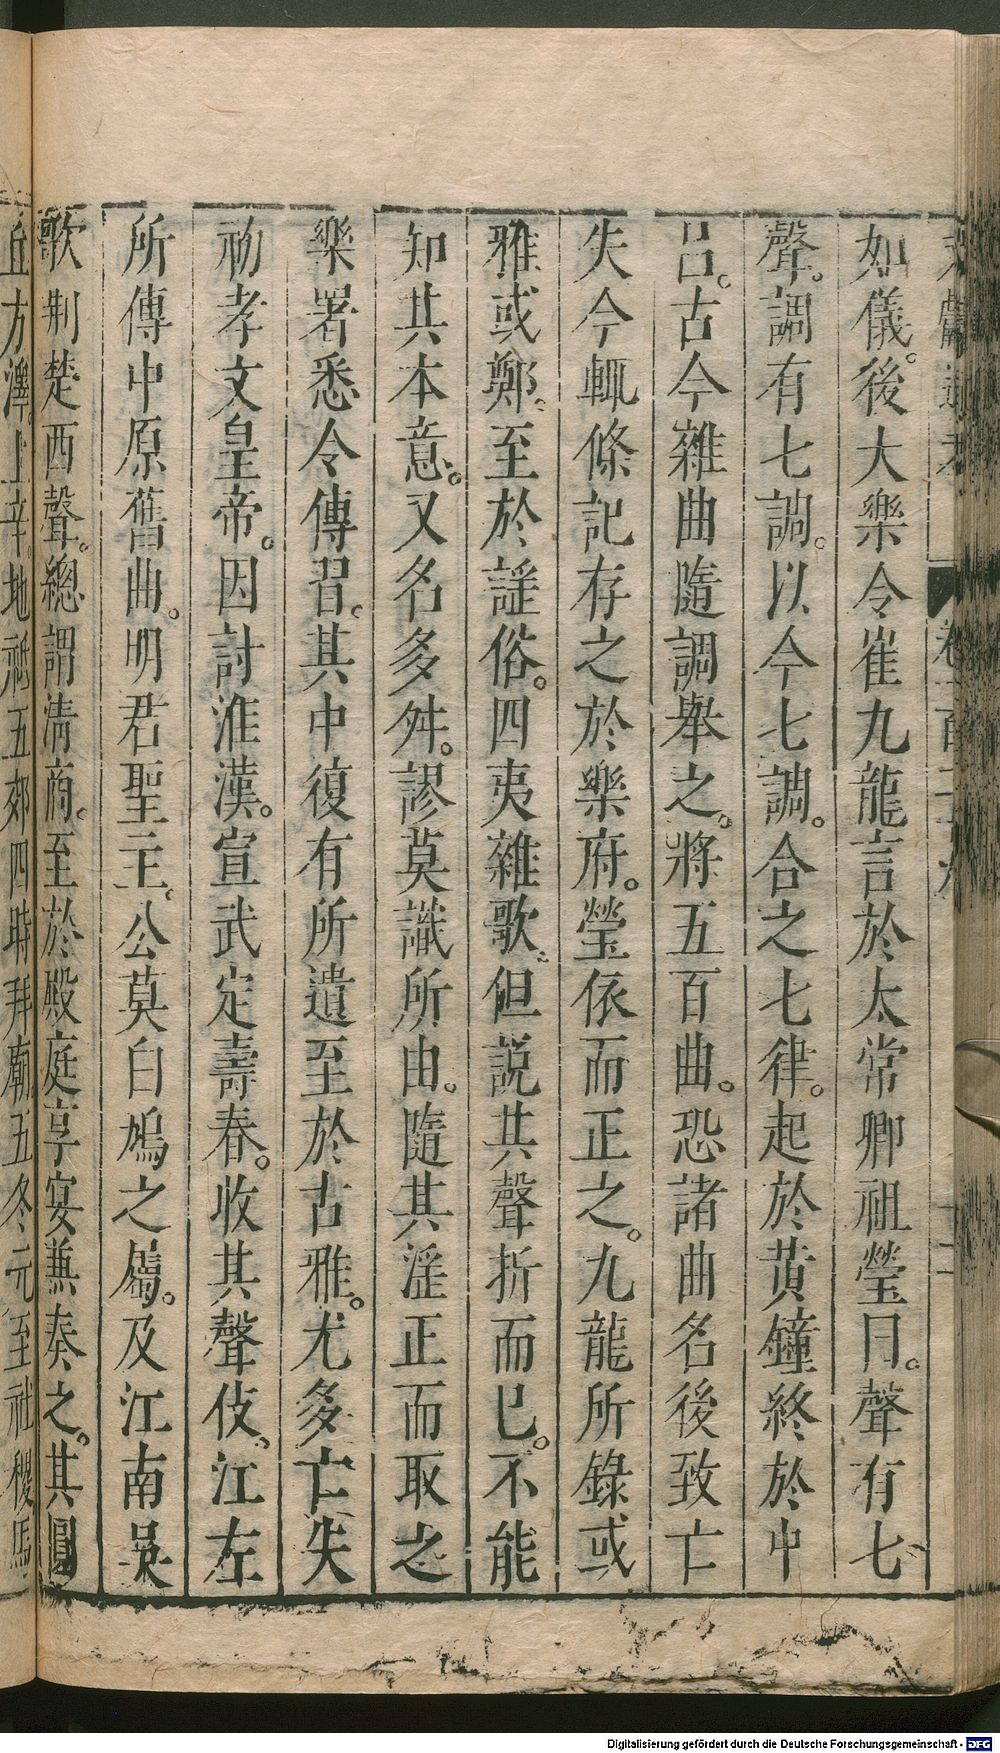 如儀。後大樂令崔九龍言於太常卿祖瑩曰。聲有七
聲。調有七調。以今七調。合之七律。起於黃鐘終於中
呂。古今雜曲隨調舉之。將五百曲。恐諸曲名後致亡
失今輒條記存之於樂府。瑩依而正之。九龍所錄或
雅或鄭。至於謡俗。四夷雜歌。但説其聲折而已。不能
知其本意。又名多舛。謬莫識所由。隨其淫正而取之
樂署悉令傳習。其中復有所遺至於古雅。尤多亡失
初孝文皇帝。因討淮漢。宣武定壽春。收其聲伎。江左
所傳中原舊曲。明君聖主。公莫白鳩之屬。及江南吳
歌荆楚西聲。總謂清商。至於殿庭享宴兼奏之。其圓
丘方澤。上辛。地祗五郊四時拜廟。五冬元至社稷馬
Digitalisierung gefördert durch die Deutsche Forschungsgemeinschaft - DFG